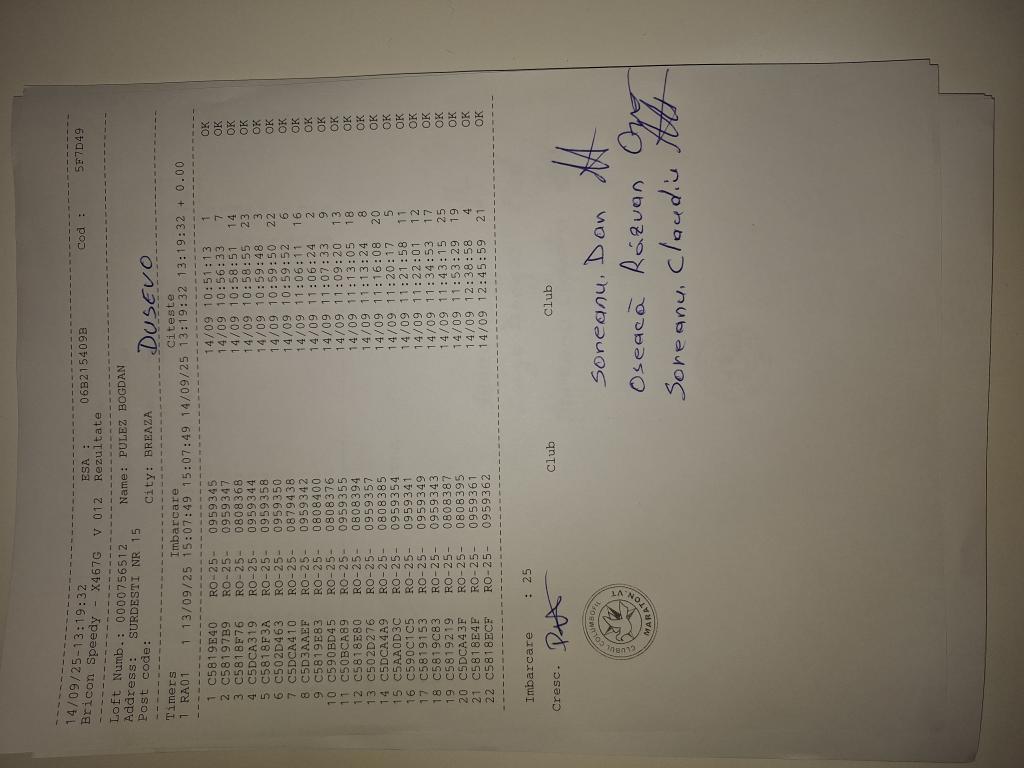 14/09/25-13:19:32
Bricon Speedy - X467G V 012 Rezultate
ESA : 06B215409B Cod : 5F7D49
Loft Numb.: 0000756512 Name: PULEZ BOGDAN
Address: SURDESTI NR 15
Post code: City: BREAZA
DUSEVO
Timers Imbarcare Citeste
1 RA01 1 13/09/25 15:07:49 15:07:49 14/09/25 13:19:32 13:19:32 + 0.00
1 C5819E40 RO-25- 0959345 14/09 10:51:13 1 OK
2 C58197B9 RO-25- 0959347 14/09 10:56:33 7 OK
3 C5818F76 RO-25- 0808368 14/09 10:58:51 14 OK
4 C5DCA319 RO-25- 0959344 14/09 10:58:55 23 OK
5 C5818F3A RO-25- 0959358 14/09 10:59:48 3 OK
6 C502D463 RO-25- 0959350 14/09 10:59:50 22 OK
7 C5DCA410 RO-25- 0879438 14/09 10:59:52 6 OK
8 C5D3AAEF RO-25- 0959342 14/09 11:06:11 16 OK
9 C5819E83 RO-25- 0808400 14/09 11:06:24 2 OK
10 C590BD45 RO-25- 0808376 14/09 11:07:33 9 OK
11 C50BCA89 RO-25- 0959355 14/09 11:09:20 13 OK
12 C5818E80 RO-25- 0808394 14/09 11:13:05 18 OK
13 C502D276 RO-25- 0959357 14/09 11:13:24 8 OK
14 C5DCA4A9 RO-25- 0808385 14/09 11:16:08 20 OK
15 C5AA0D3C RO-25- 0959354 14/09 11:20:17 5 OK
16 C590C1C5 RO-25- 0959341 14/09 11:21:58 11 OK
17 C5819153 RO-25- 0959349 14/09 11:22:01 12 OK
18 C5819C83 RO-25- 0959343 14/09 11:34:53 17 OK
19 C5819219 RO-25- 0808387 14/09 11:43:15 25 OK
20 C5DCA42F RO-25- 0808395 14/09 11:53:29 19 OK
21 C5818E4F RO-25- 0959361 14/09 12:38:58 4 OK
22 C5818ECF RO-25- 0959362 14/09 12:45:59 21 OK
Imbarcare : 25
Cresc. Club Club
Soneanu. Dan
Oseacă Răzvan
Soneanu. Claudiu
CLUBUL COLUMBOFIL
MARATON.VT